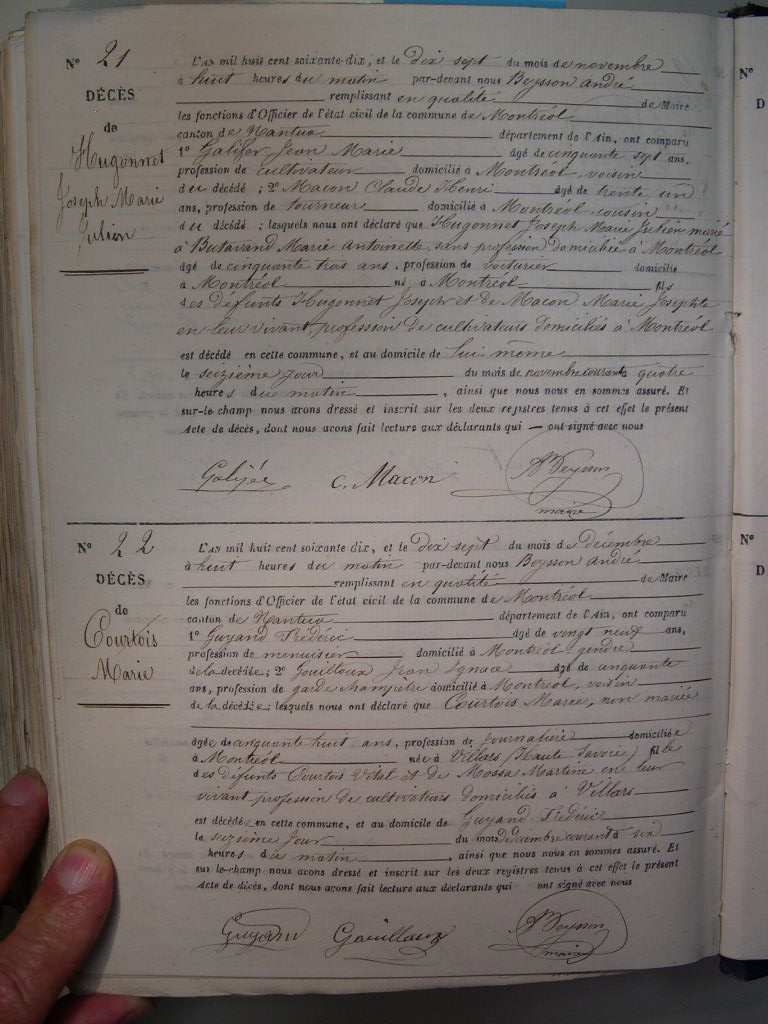 N° 21
DÉCÈS
de
Hugonnet
Joseph Marie
Julien
L'AN mil huit cent soixante-dix, et le dix sept du mois de novembre
à huit heures du matin par-devant nous Beysson André
remplissant en qualité de Maire
les fonctions d'Officier de l'état civil de la commune de Montréal
canton de Nantua département de l'Ain, ont comparu
1° Jean Marie âgé de cinquante sept ans,
profession de cultivateur domicilié à Montréal voisin
du décédé ; 2° Macon Claude Henri âgé de trente un
ans, profession de tourneur domicilié à Montréal cousin
du décédé ; lesquels nous ont déclaré que Hugonnet Joseph Marie Julien marié
à Butavand Marie Antoinette, sans profession domiciliée à Montréal
âgé de cinquante trois ans, profession de voiturier domicilié
à Montréal né à Montréal fils
des défunts Hugonnet Joseph et de Macon Marie Josephte
en leur vivant, profession de cultivateurs domiciliés à Montréal
est décédé en cette commune, et au domicile de lui même
le seizième jour du mois de novembre courant à quatre
heures du matin , ainsi que nous nous en sommes assuré. Et
sur-le-champ nous avons dressé et inscrit sur les deux registres tenus à cet effet le présent
Acte de décès, dont nous avons fait lecture aux déclarants qui — ont signé avec nous
C. Macon
maire
N° 22
DÉCÈS
de
Courtois
Marie
L'AN mil huit cent soixante dix, et le dix sept du mois de décembre
à huit heures du matin par-devant nous Beysson André
remplissant en qualité de Maire
les fonctions d'Officier de l'état civil de la commune de Montréal
canton de Nantua département de l'Ain, ont comparu
1° Guyand Frédéric âgé de vingt neuf ans,
profession de menuisier domicilié à Montréal gendre
de la décédée ; 2° Gouilloux Jean Ignace âgé de cinquante
ans, profession de garde champêtre domicilié à Montréal, voisin
de la décédée ; lesquels nous ont déclaré que Courtois Marie, non mariée
âgée de cinquante huit ans, profession de journalière domiciliée
à Montréal née à Villars (Haute Savoie) fille
des défunts Courtois Vital et de Mossa Martine en leur
vivant profession de cultivateurs domiciliés à Villars
est décédée en cette commune, et au domicile de Guyand Frédéric
le seizième jour du mois décembre courant à six
heures du matin , ainsi que nous nous en sommes assuré. Et
sur-le-champ nous avons dressé et inscrit sur les deux registres tenus à cet effet le présent
Acte de décès, dont nous avons fait lecture aux déclarants qui ont signé avec nous
Guyand Gouilloux Beysson
maire
N°
D
N°
D